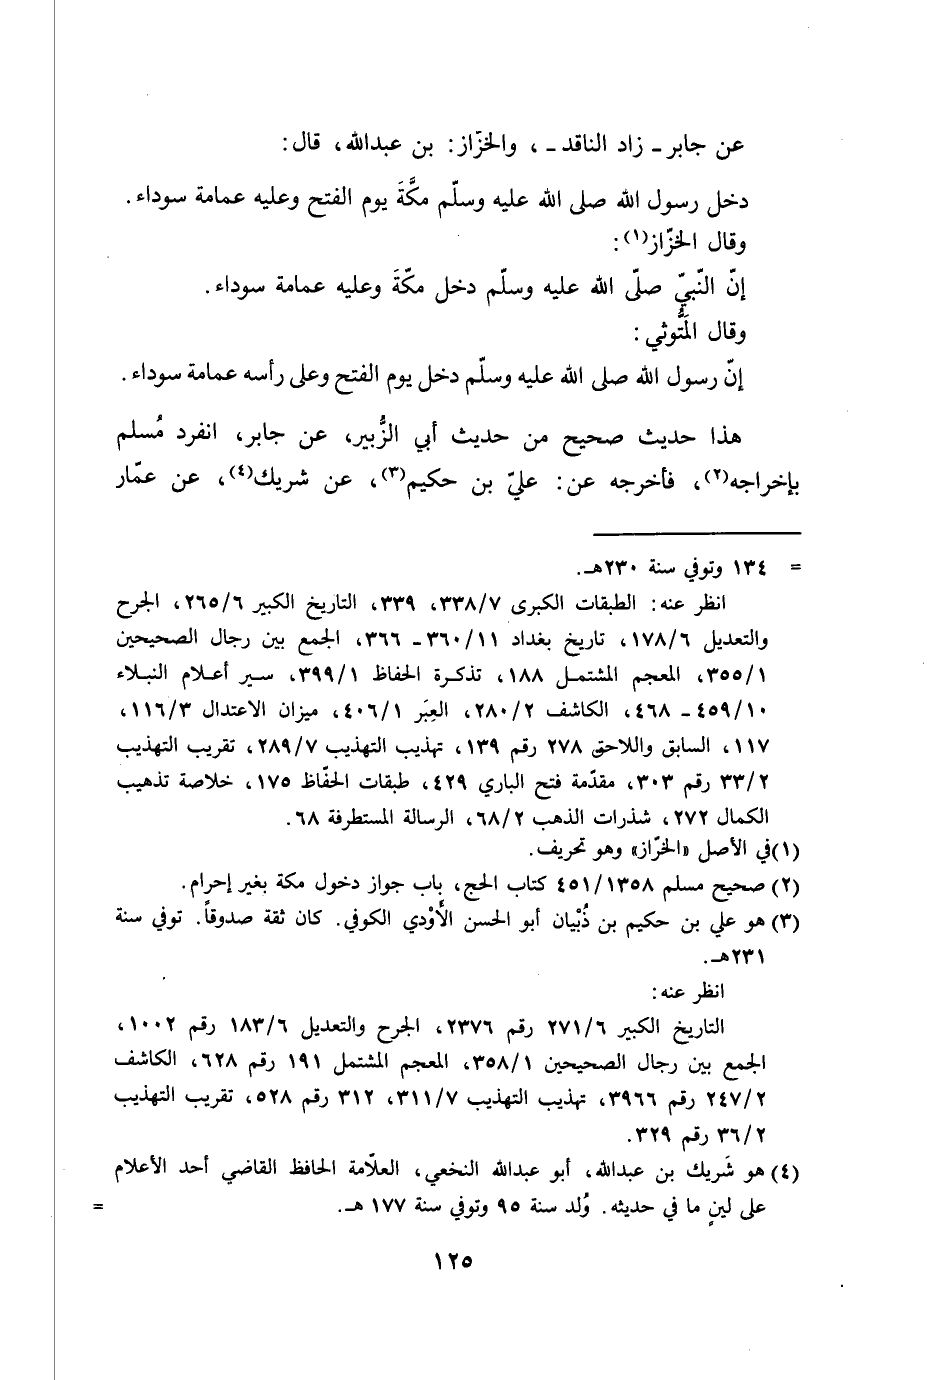 عن جابر ـ زاد الناقد ـ ، والخزّاز: بن عبدالله، قال:
دخل رسول الله صلى الله عليه وسلّم مكَّةَ يوم الفتح وعليه عمامة سوداء.
وقال الخزّاز(١):
إنّ النّبيّ صلّى الله عليه وسلّم دخل مكّةَ وعليه عمامة سوداء.
وقال المَتُّوثي:
إنّ رسول الله صلى الله عليه وسلّم دخل يوم الفتح وعلى رأسه عمامة سوداء.
هذا حديث صحيح من حديث أبي الزُّبير، عن جابر، انفرد مُسلم
بإخراجه(٢)، فأخرجه عن: عليّ بن حكيم(٣)، عن شريك(٤)، عن عمّار
= ١٣٤ وتوفي سنة ٢٣٠هـ.
انظر عنه: الطبقات الكبرى ٣٣٨/٧، ٣٣٩، التاريخ الكبير ٢٦٥/٦، الجرح
والتعديل ١٧٨/٦، تاريخ بغداد ٣٦٠/١١ ـ ٣٦٦، الجمع بين رجال الصحيحين
٣٥٥/١، المعجم المشتمل ١٨٨، تذكرة الحفاظ ٣٩٩/١، سير أعلام النبلاء
٤٥٩/١٠ ـ ٤٦٨، الكاشف ٢٨٠/٢، العِبَر ٤٠٦/١، ميزان الاعتدال ١١٦/٣،
١١٧، السابق واللاحق ٢٧٨ رقم ١٣٩، تهذيب التهذيب ٢٨٩/٧، تقريب التهذيب
٣٣/٢ رقم ٣٠٣، مقدّمة فتح الباري ٤٢٩، طبقات الحفّاظ ١٧٥، خلاصة تذهيب
الكمال ٢٧٢، شذرات الذهب ٦٨/٢، الرسالة المستطرفة ٦٨.
(١) في الأصل «الخرّاز» وهو تحريف.
(٢) صحيح مسلم ٤٥١/١٣٥٨ كتاب الحج، باب جواز دخول مكة بغير إحرام.
(٣) هو علي بن حكيم بن ذُبْيان أبو الحسن الأَوْدي الكوفي. كان ثقة صدوقاً. توفي سنة
٢٣١هـ.
انظر عنه:
التاريخ الكبير ٢٧١/٦ رقم ٢٣٧٦، الجرح والتعديل ١٨٣/٦ رقم ١٠٠٢،
الجمع بين رجال الصحيحين ٣٥٨/١، المعجم المشتمل ١٩١ رقم ٦٢٨، الكاشف
٢٤٧/٢ رقم ٣٩٦٦، تهذيب التهذيب ٣١١/٧، ٣١٢ رقم ٥٢٨، تقريب التهذيب
٣٦/٢ رقم ٣٢٩.
(٤) هو شَريك بن عبدالله، أبو عبدالله النخعي، العلاّمة الحافظ القاضي أحد الأعلام
على لينٍ ما في حديثه. وُلد سنة ٩٥ وتوفي سنة ١٧٧ هـ. =
١٢٥